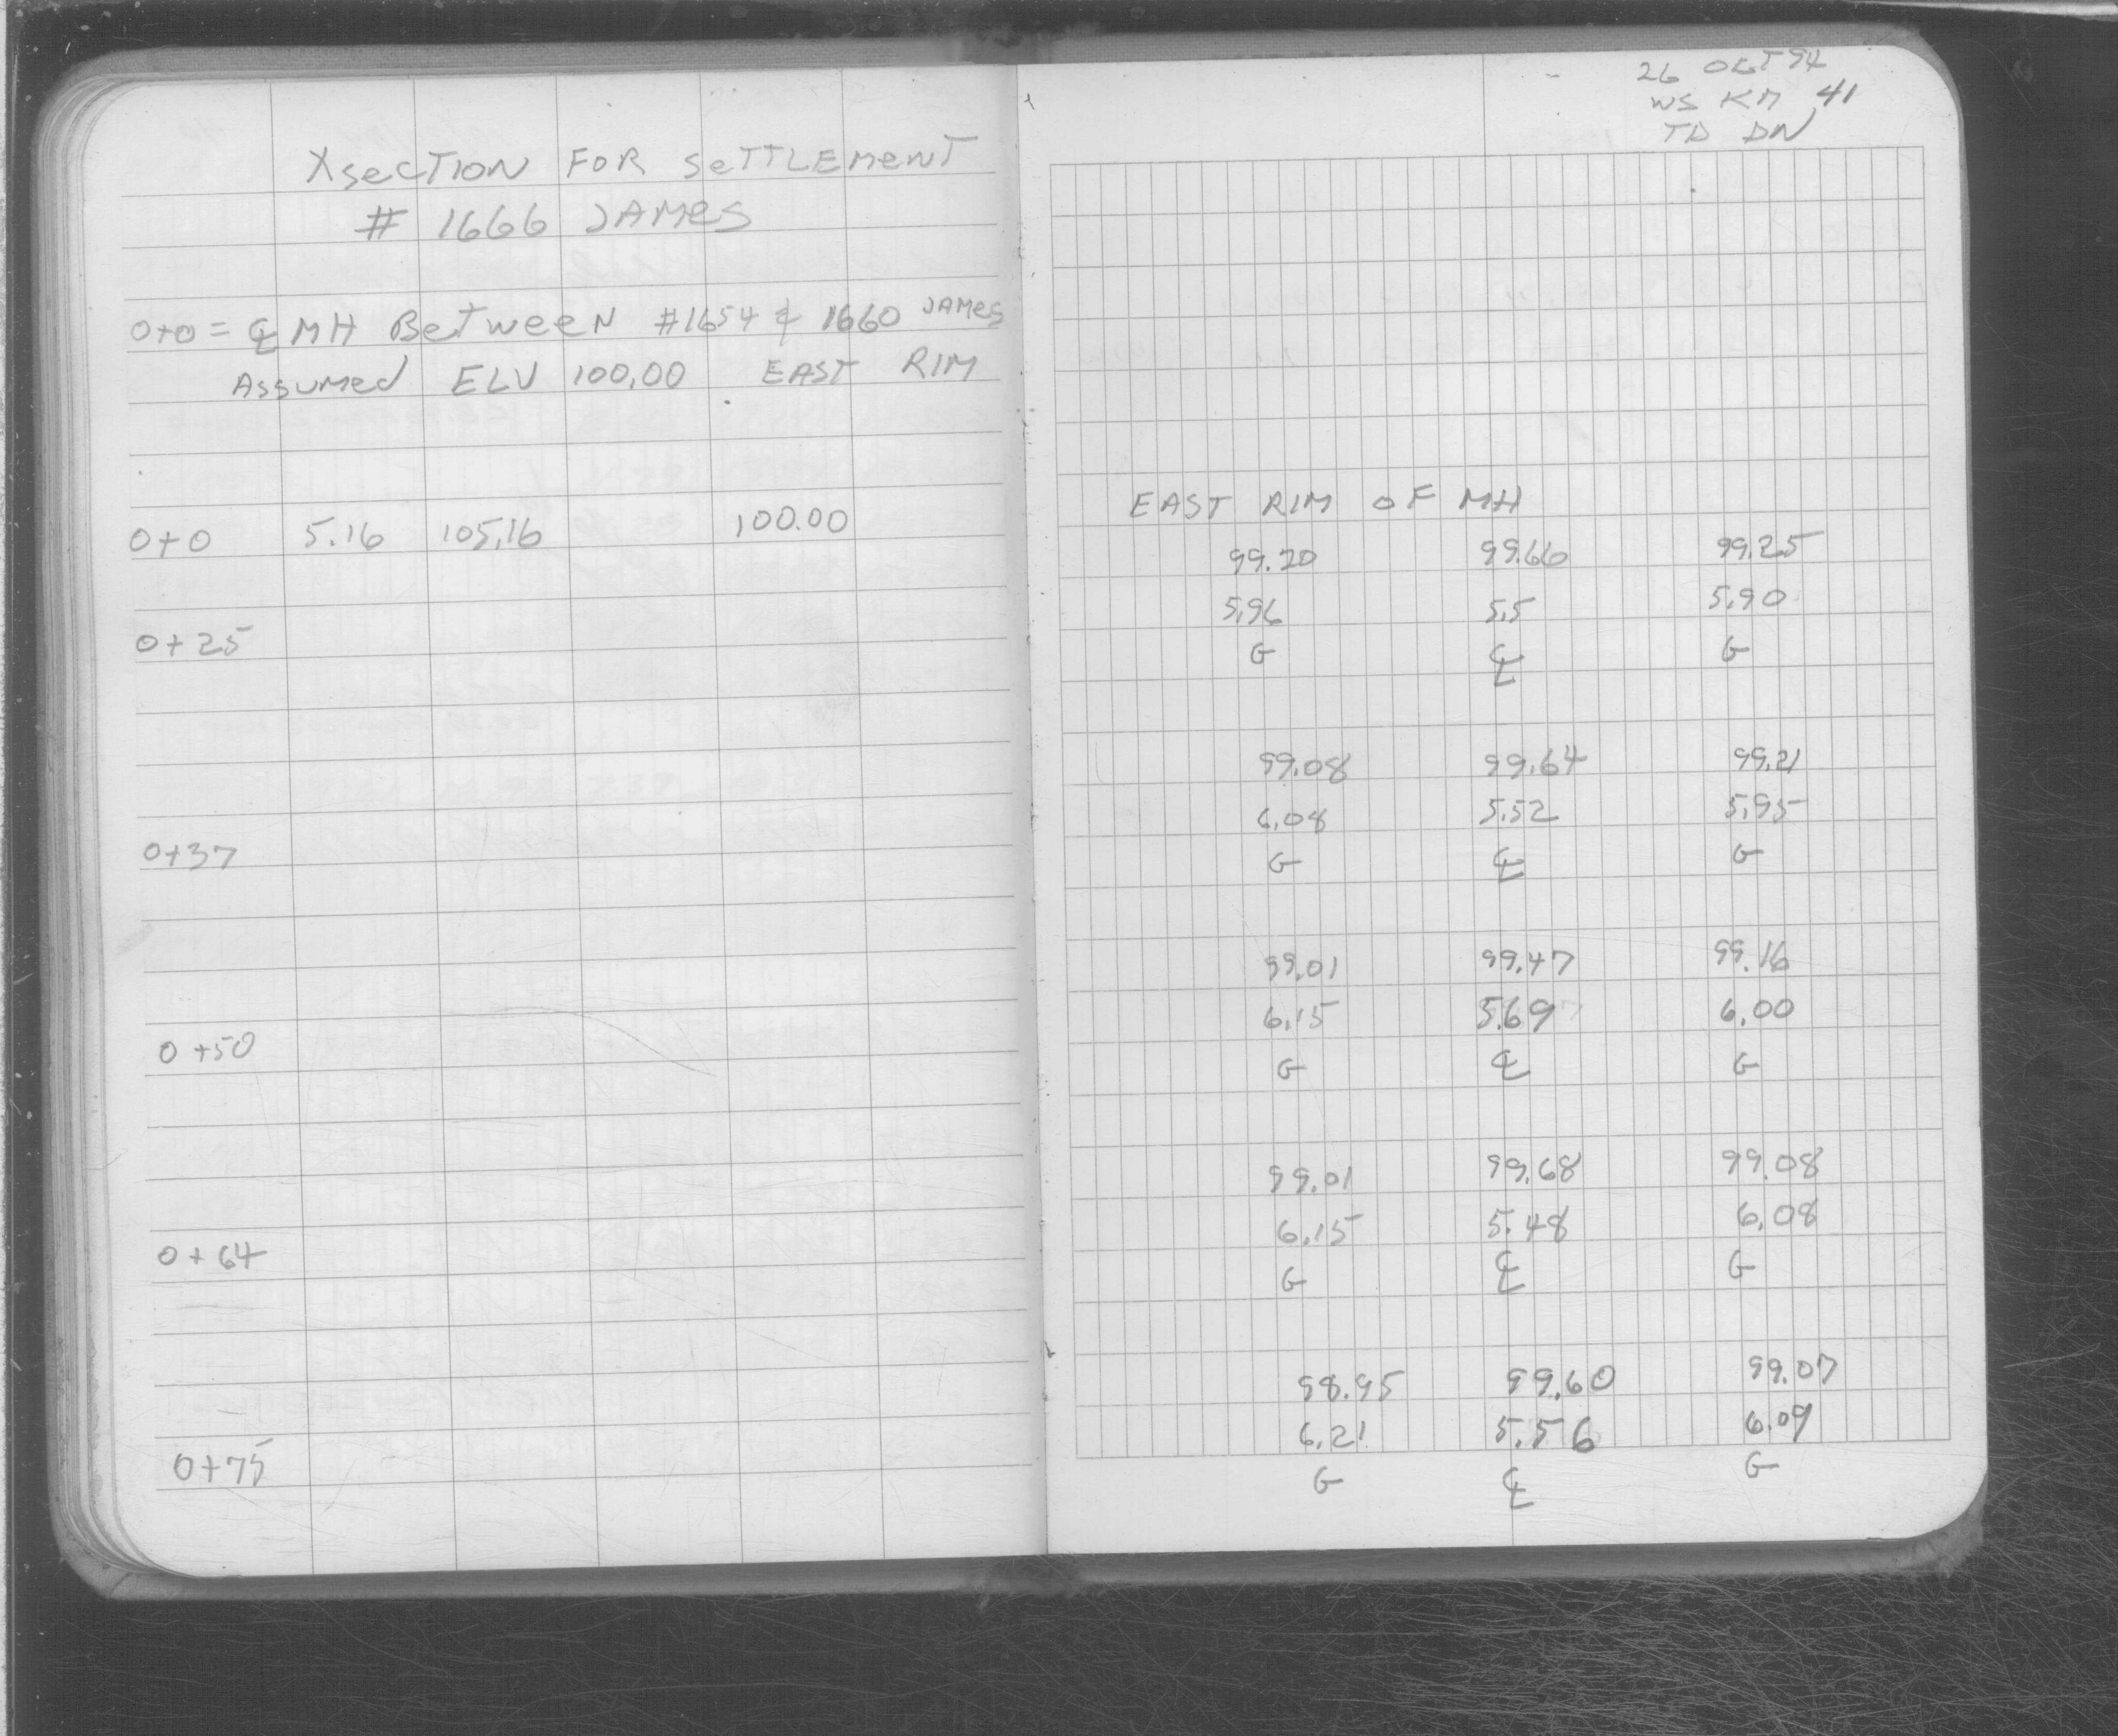 XSECTION FOR SETTLEMENT
# 1666 JAMES
0+0 = ℄ MH BETWEEN #1654 & 1660 JAMES
ASSUMED ELV 100.00 EAST RIM
0+0 5.16 105.16 100.00
0+25
0+37
0+50
0+64
0+75
26 OCT 94
WS KM 41
TD DN
EAST RIM OF MH
99.20 99.66 99.25
5.96 5.5 5.90
G ℄ G
99.08 99.64 99.21
6.08 5.52 5.95
G ℄ G
99.01 99.47 99.16
6.15 5.69 6.00
G ℄ G
99.01 99.68 99.08
6.15 5.48 6.08
G ℄ G
98.95 99.60 99.07
6.21 5.56 6.09
G ℄ G